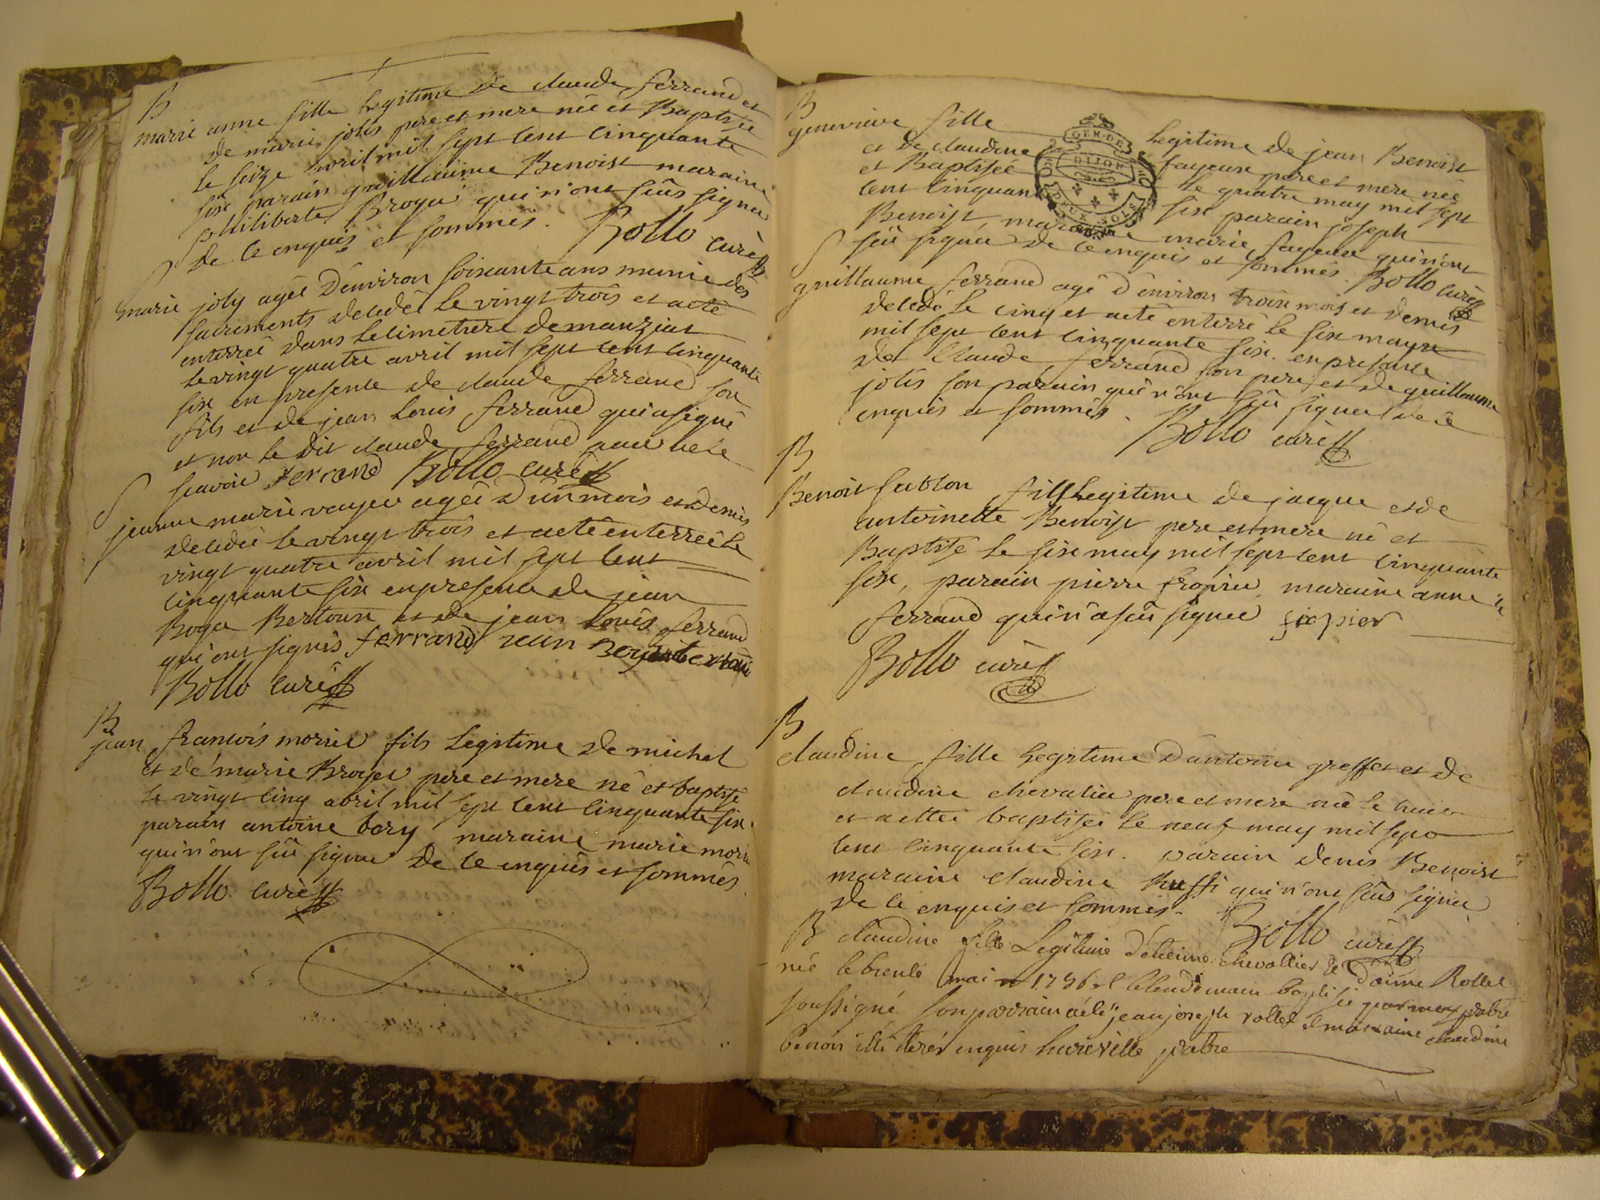 B
marie anne fille legitime de claude ferrand et
de marie jolis pere et mere née et Baptisée
le seize avril mil sept cent cinquante
six parain guillaume Benoist maraine
philiberte Broyé qui n'ont sûs signer
de ce enquis et sommés. Bollo curé
S
marie joly agée d'environ soixante ans munie des
sacrements decedée le vingt trois et aeté
enterrée dans le cimetiere de manziat
le vingt quatre avril mil sept cent cinquante
six en presence de claude ferrand son
fils et de jean Louis ferrand qui a signé
et non le dit claude ferrand pour ne le
scavoir ferrand Bollo curé
S
jeanne marie voyer agée d'un mois et demis
decedée le vingt trois et aeté enterrée le
vingt quatre avril mil sept cent
cinquante six en presence de jean
Boyer Bertoun et de jean Louis ferrand
qui ont signés ferrand jean
Bollo curé
B
jean francois morel fils legitime de michel
et de marie Broyer pere et mere né et baptisé
le vingt cinq abril mil sept cent cinquante six.
parain antoine bory maraine marie
qui n'ont sûs signer de ce enquis et sommés
Bollo curé
B
genevieve fille legitime de jean Benoist
et de claudine fayeux pere et mere née
et Baptisée le quatre may mil sept
cent cinquante six parain joseph
Benoist, maraine marie fayeux qui n'ont
sûs signer de ce enquis et sommés. Bollo curé
GEN. DE
DIJON
DEUX SOLS
S
guillaume ferrand agé d'environ trois mois et demis
decedé le cinq et aeté enterré le six may
mil sept cent cinquante six. en presence
de Claude ferrand son pere et de guillaume
jolis son parain qui n'ont sû signer de ce
enquis et sommés. Bollo curé
B
Benoit fils legitime de jacque et de
antoinette Benoist pere et mere né et
Baptisé le six may mil sept cent cinquante
six, parain pierre maraine anne
ferrand qui n'a sûs signer
Bollo curé
B
claudine fille legitime d'antoine greffet et de
claudine chevalier pere et mere née le huit
et aeté baptisée le neuf may mil sept
cent cinquante six. parain denis Benoist
maraine claudine Ruffi qui n'ont sûs signer
de ce enquis et sommés. Bollo curé
B claudine fille Legitime d'etienne chevallier et d'aime Rollet
née le trente mai 1756 et le lendemain baptisée par moy
soussigné son parrain a été jean joseph rollet et maraine claudine
benoit illiterés enquis